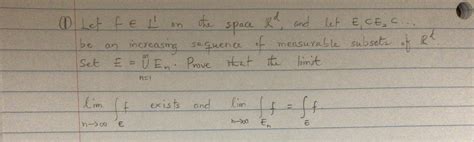 (1) Let f ∈ L¹ on the space ℝᵈ, and let E₁⊂E₂⊂...
be an increasing sequence of measurable subsets of ℝᵈ.
Set E = ∞∪n=1 Eₙ. Prove that the limit
lim n→∞ ∫E f exists and lim n→∞ ∫Eₙ f = ∫E f.